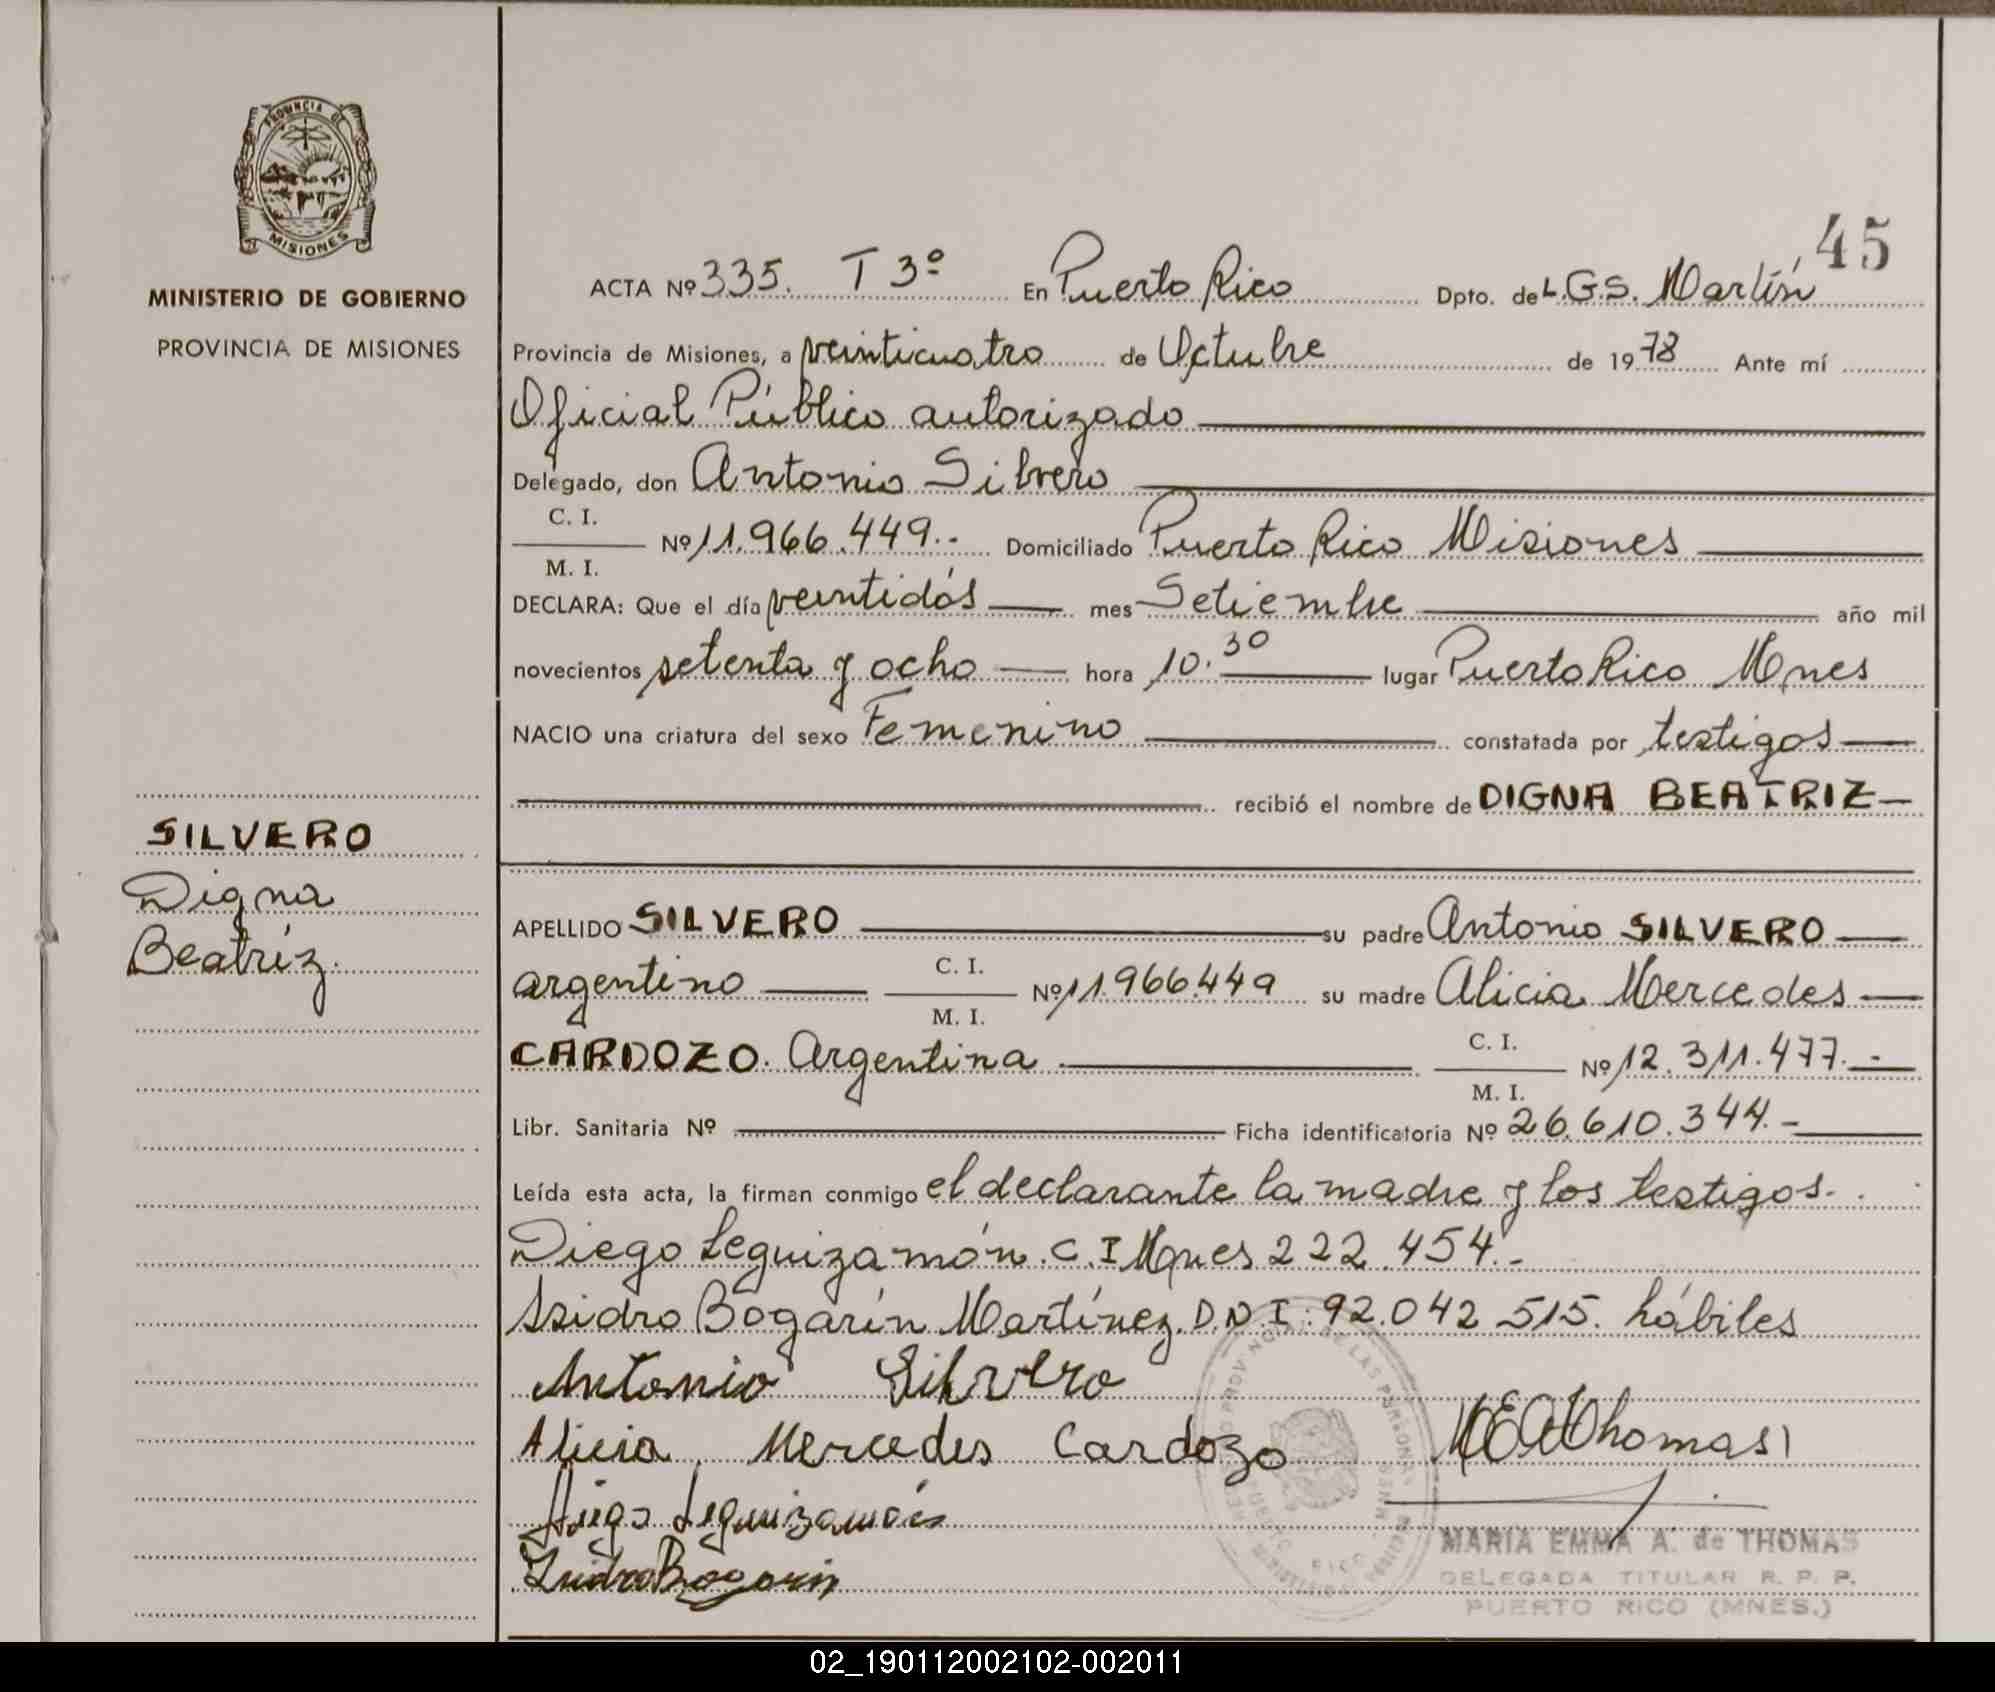 PROVINCIA DE
MISIONES
MINISTERIO DE GOBIERNO
PROVINCIA DE MISIONES
SILVERO
Digna
Beatríz.
45
ACTA Nº 335. T 3º En Puerto Rico Dpto. de L.G.S. Martín
Provincia de Misiones, a veinticuatro de Octubre de 1978 Ante mí
Oficial Público autorizado
Delegado, don Antonio Silvero
C. I.
M. I. Nº 11.966.449.- Domiciliado Puerto Rico Misiones
DECLARA: Que el día veintidós mes Setiembre año mil
novecientos setenta y ocho hora 10.30 lugar Puerto Rico Mnes
NACIO una criatura del sexo Femenino constatada por testigos
recibió el nombre de DIGNA BEATRIZ
APELLIDO SILVERO su padre Antonio SILVERO
argentino C. I. M. I. Nº 11.966.449 su madre Alicia Mercedes
CARDOZO. Argentina C. I. M. I. Nº 12.311.477.-
Libr. Sanitaria Nº Ficha identificatoria Nº 26.610.344.-
Leída esta acta, la firman conmigo el declarante la madre y los testigos.
Diego Leguizamón. C.I Mnes 222.454.-
Isidro Bogarín Martínez. D.N.I: 92.042.515. hábiles
Antonio Silvero
Alicia Mercedes Cardozo
MEAThomas
Diego Leguizamón
Isidro Bogarin
DE LAS PERSONAS
PUERTO RICO
MARIA EMMA A. de THOMAS
DELEGADA TITULAR R. P. P.
PUERTO RICO (MNES.)
02_190112002102-002011